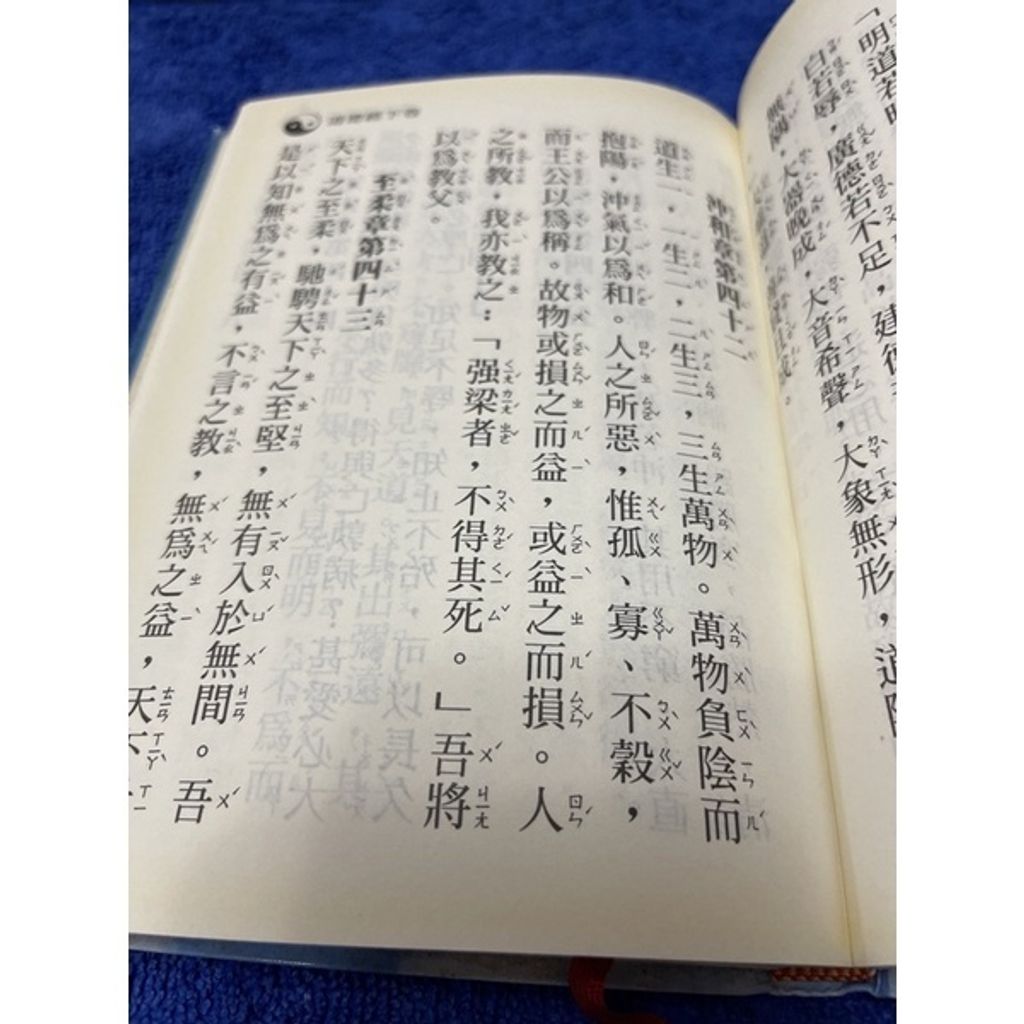 「明道若
白若辱，廣德若不足，建德
無隅，大器晚成，大音希聲，大象無形，道
成。
沖和章第四十二
道生一，一生二，二生三，三生萬物。萬物負陰而
抱陽，沖氣以為和。人之所惡，惟孤、寡、不穀，
而王公以為稱。故物或損之而益，或益之而損。人
之所教，我亦教之：「强梁者，不得其死。」吾將
以為教父。
至柔章第四十三
天下之至柔，馳騁天下之至堅，無有入於無間。吾
是以知無為之有益，不言之教，無為之益，天下
道德經下卷